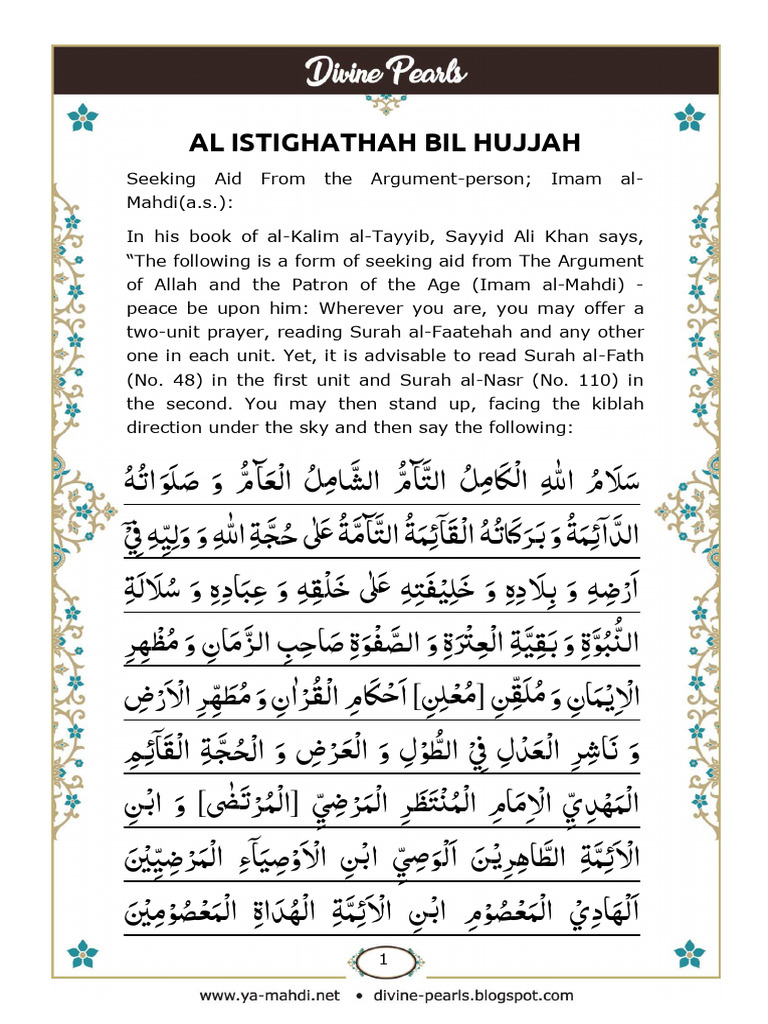 Divine Pearls
AL ISTIGHATHAH BIL HUJJAH
Seeking Aid From the Argument-person; Imam al-
Mahdi(a.s.):
In his book of al-Kalim al-Tayyib, Sayyid Ali Khan says,
“The following is a form of seeking aid from The Argument
of Allah and the Patron of the Age (Imam al-Mahdi) -
peace be upon him: Wherever you are, you may offer a
two-unit prayer, reading Surah al-Faatehah and any other
one in each unit. Yet, it is advisable to read Surah al-Fath
(No. 48) in the first unit and Surah al-Nasr (No. 110) in
the second. You may then stand up, facing the kiblah
direction under the sky and then say the following:
سَلَامُ اللهِ الْكَامِلُ التَّآمُّ الشَّامِلُ الْعَآمُّ وَ صَلَوَاتُهُ
الدَّآئِمَةُ وَ بَرَكَاتُهُ الْقَآئِمَةُ التَّآمَّةُ عَلٰى حُجَّةِ اللهِ وَ وَلِيِّهِ فِيْۤ
اَرْضِهِ وَ بِلَادِهِ وَ خَلِيْفَتِهِ عَلٰى خَلْقِهِ وَ عِبَادِهِ وَ سُلَالَةِ
النُّبُوَّةِ وَ بَقِيَّةِ الْعِتْرَةِ وَ الصَّفْوَةِ صَاحِبِ الزَّمَانِ وَ مُظْهِرِ
الْاِيْمَانِ وَ مُلَقِّنِ [مُعْلِنِ] اَحْكَامِ الْقُرْاٰنِ وَ مُطَهِّرِ الْاَرْضِ
وَ نَاشِرِ الْعَدْلِ فِيْ الطُّوْلِ وَ الْعَرْضِ وَ الْحُجَّةِ الْقَآئِمِ
الْمَهْدِيِّ الْاِمَامِ الْمُنْتَظَرِ الْمَرْضِيِّ [الْمُرْتَضٰى] وَ ابْنِ
الْاَئِمَّةِ الطَّاهِرِيْنَ اَلْوَصِيِّ ابْنِ الْاَوْصِيَآءِ الْمَرْضِيِّيْنَ
اَلْهَادِيْ الْمَعْصُوْمِ ابْنِ الْاَئِمَّةِ الْهُدَاةِ الْمَعْصُوْمِيْنَ
1
www.ya-mahdi.net • divine-pearls.blogspot.com